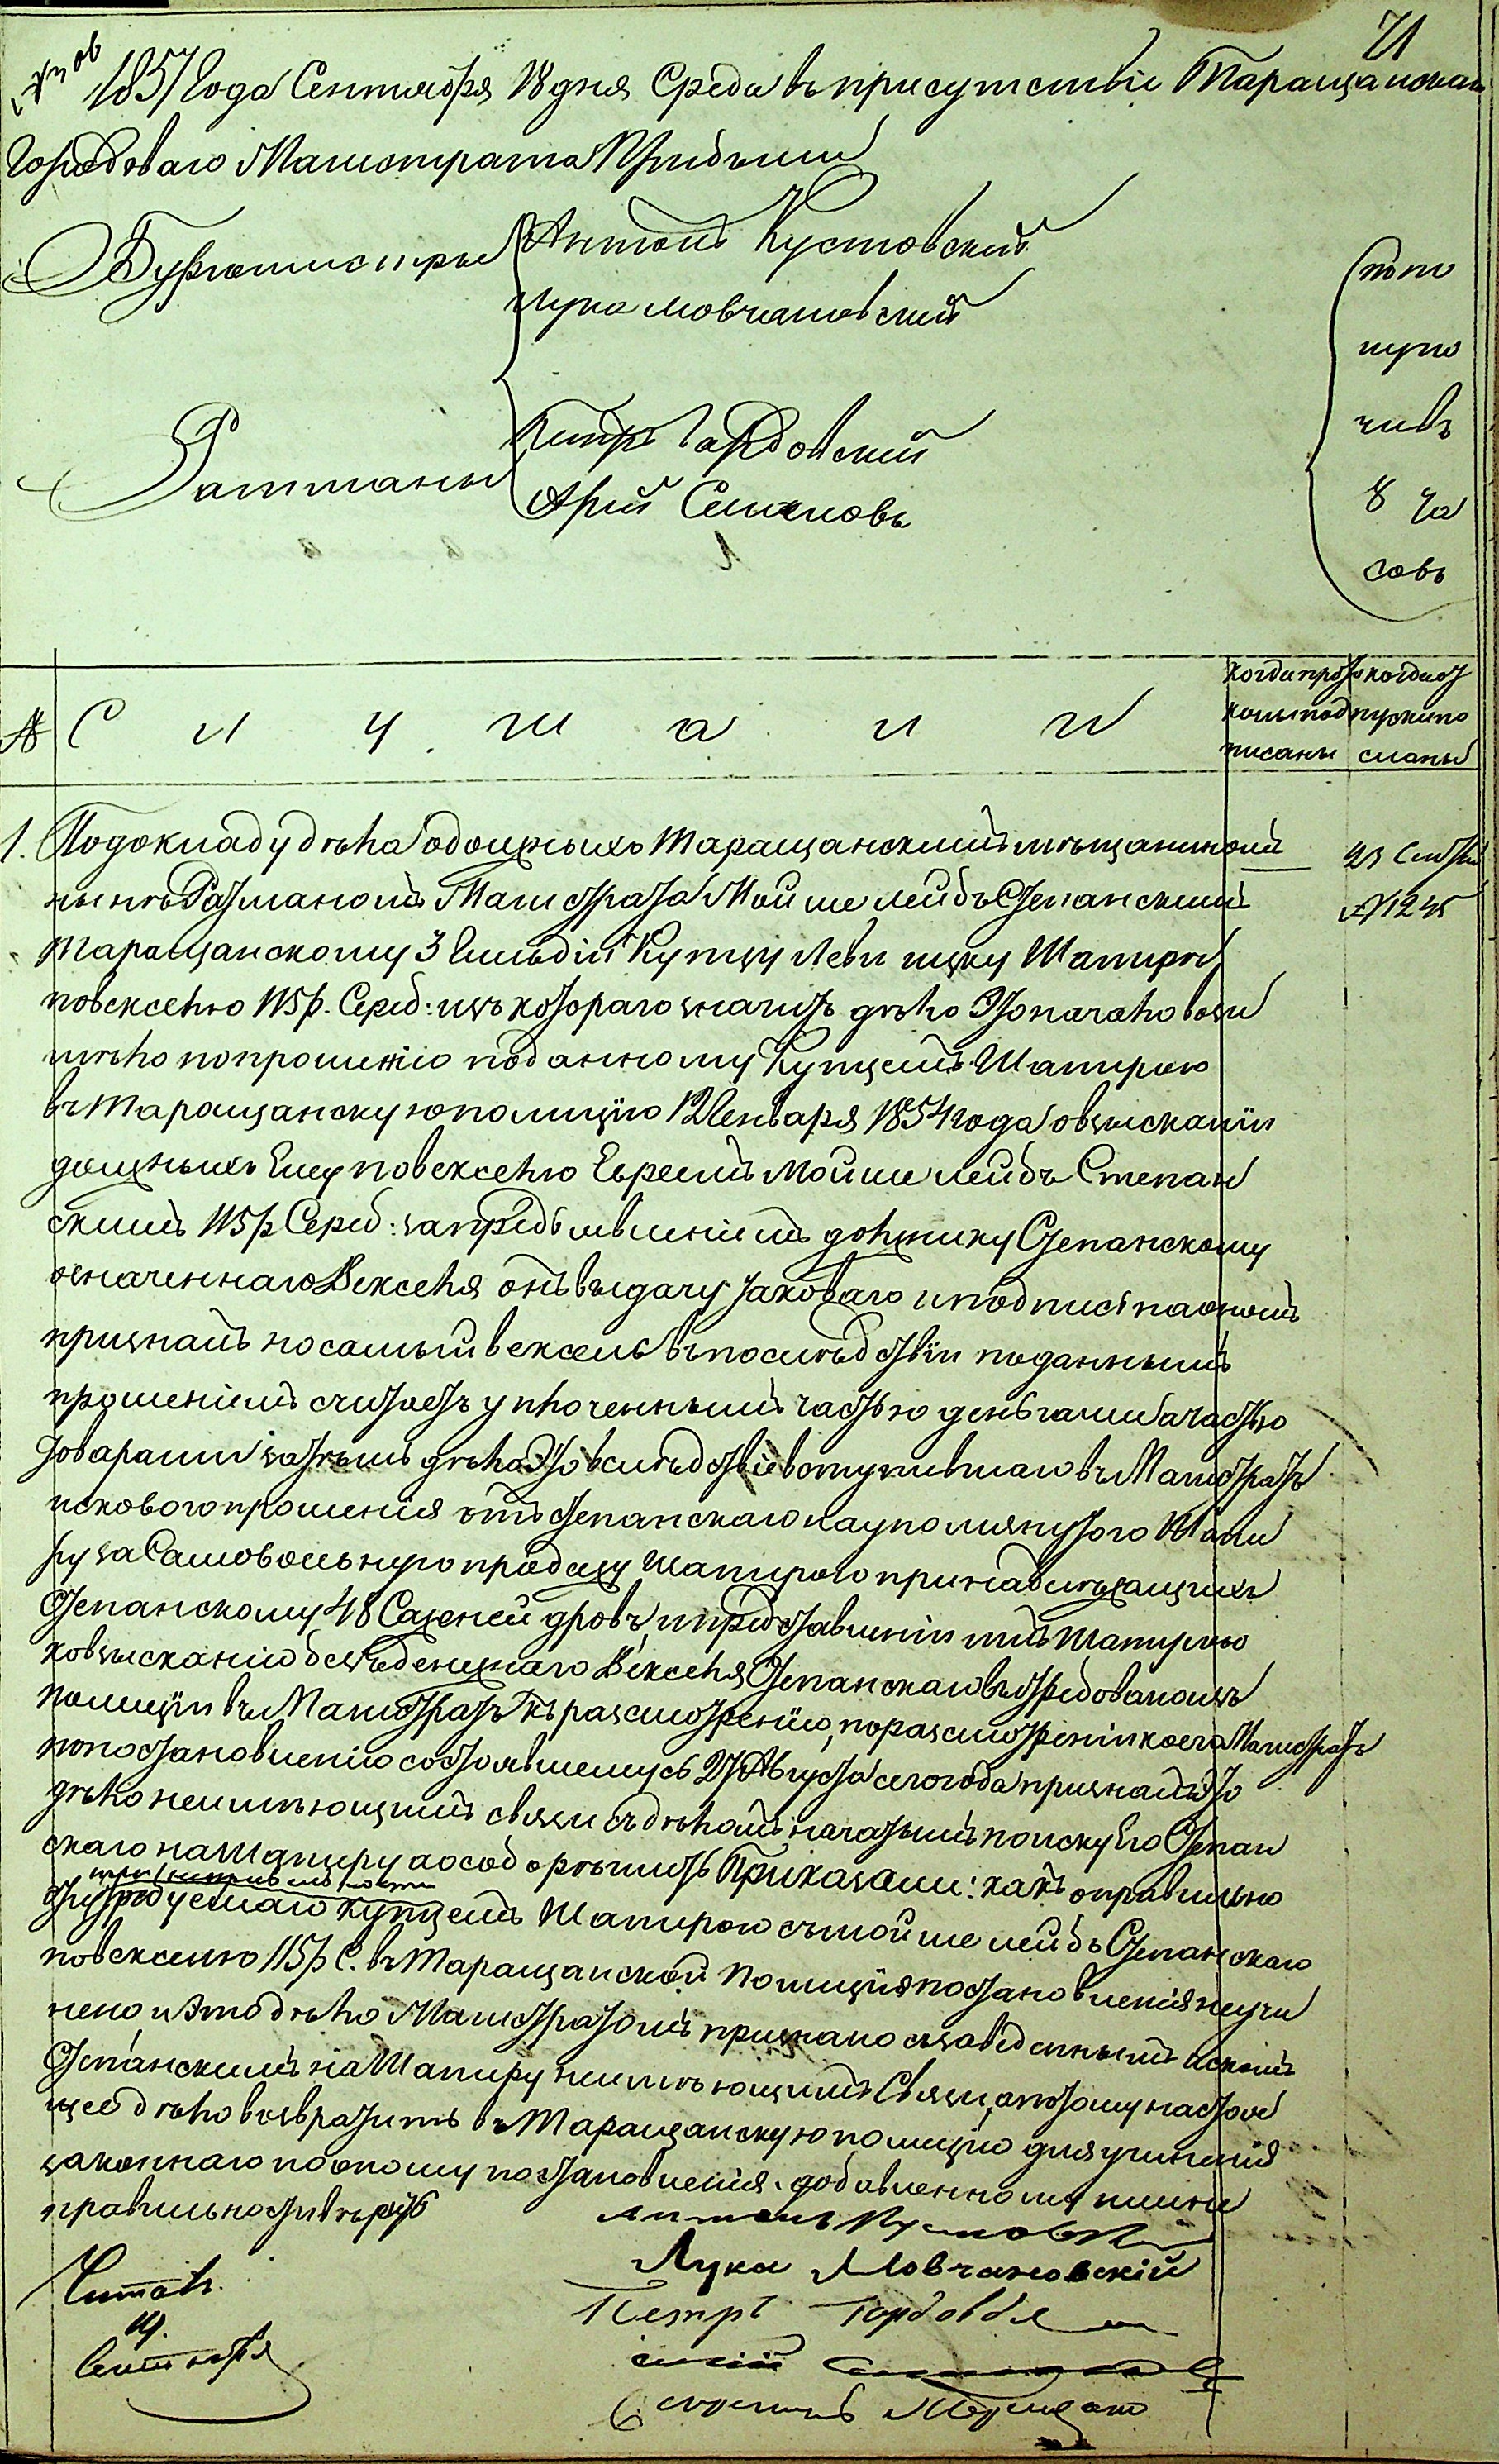 71
1857 Года Сентября 18 дня Среда въ присутствіе Таращанскаго
Городоваго Магистрата Прибыли
Бургомистры
Антонъ Кустовский
Лука Мовчановский
Ратманы
Петръ Гардовский
Арий Симановъ
по по
лупо
чивъ
8 ча
совъ
№ Слушали
когда прото
колы под
писаны
когда от
пуски по
сланы
1. По докладу дѣла о должныхъ Таращанскимъ мѣщаниномъ
нынѣ Ратманомъ Магистрата Мойше Лейбъ Степанскимъ
Таращанскому 3 Гильдіи Купцу Леви Ицку Шапиръ
по векселю 115 р. Сереб: изъ котораго значитъ дѣло Это началовози
мѣло по прошенію поданному Купцемъ Шапирою
въ Таращанскую полицію 12 Генваря 1854 года о взысканіи
должныхъ Ему по векселю Евреемъ Мойше Лейбъ Степан
скимъ 115 р Сереб: за предъявленіемъ должнику Степанскому
означеннаго Векселя онъ выдачу таковаго и подпись на ономъ
призналъ но самый вексель въ послѣдствіи поданнымъ
прошеніемъ считаетъ уплоченнымъ частью деньгами а частью
товарами затѣмъ дѣло Это вслѣдствіе вступившаго въ Магистратъ
исковаго прошенія отъ Степанскаго на упомянутого Шапи
ру за Самовольную продажу Шапирою принадлежащихъ
Степанскому 48 Саженей дровъ, и представленіи имъ Шапирою
ко взысканію безъденежнаго Векселя Степанскаго вытребовано изъ
полиціи въ Магистратъ къ разсмотренію, по разсмотреніи коего Магистратъ
по постановленію состоявшемуся 27 Августа сего года призналъ Это
дѣло неимѣющимъ связи съ дѣломъ начатымъ по иску Его Степан
скаго на Шапиру а особо рѣшить Приказали: какъ о правильно
требуемаго купцемъ Шапирою съ Мойше Лейбъ Степанскаго
по векселю 115 р С. въ Таращанской Полиціи постановленія неучи
нено и Это дѣло Магистратомъ признано съ заведеннымъ искомъ
Степанскимъ на Шапиру неимѣющимъ Связи, а потому настоя
щее дѣло возвратить въ Таращанскую полицію для учиненія
законнаго по оному постановленія.
правильности вѣрить
Антонъ Кустовский
Лука Мовчановскій
Петръ Гардовскій
Читалъ
Сентября
23 Сентября
№ 1245